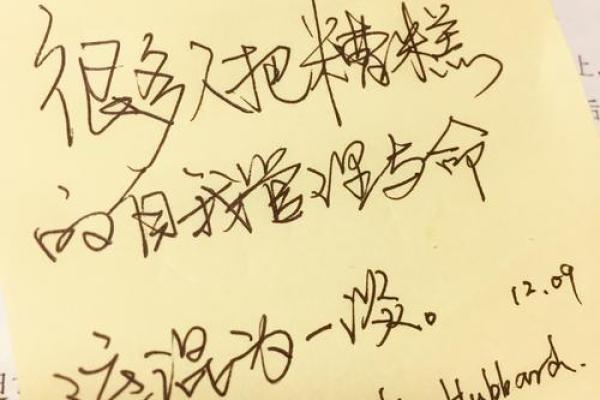 很多人把糟糕
的自我管理与命
运混为一谈。
12.09
Hubbard.